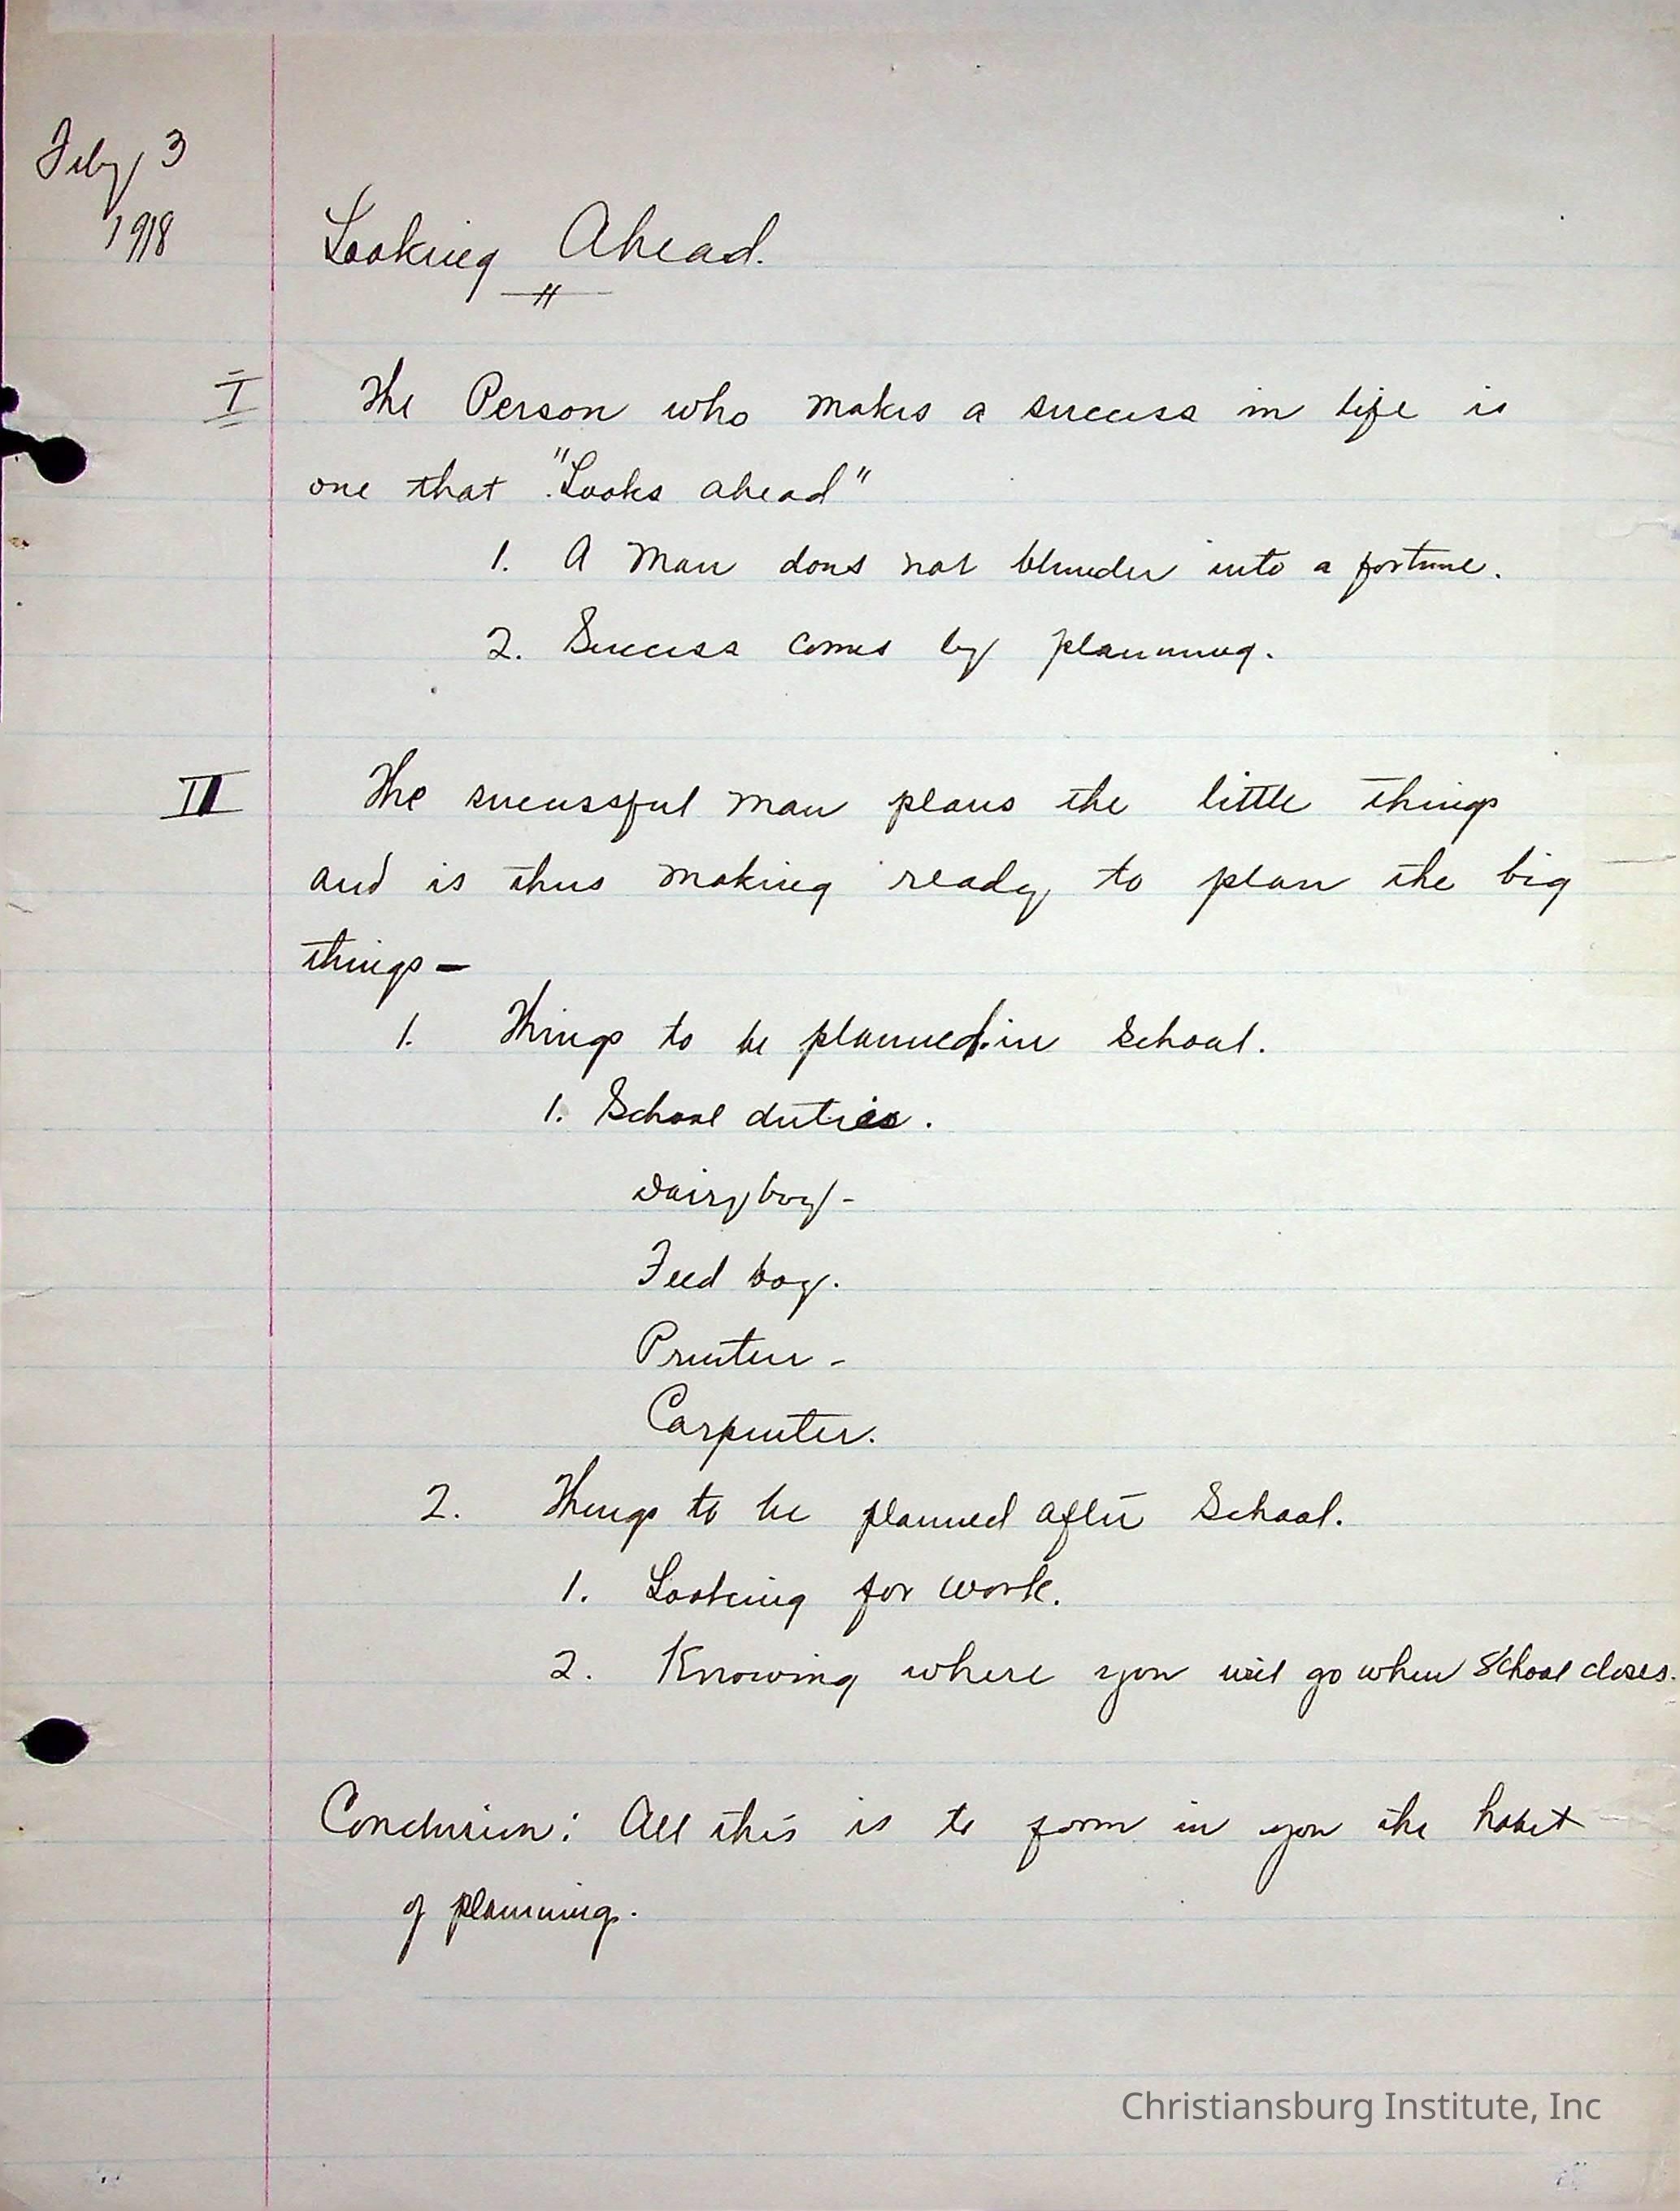 Feby 3
1918
Looking Ahead.
I The Person who makes a success in life is
one that "Looks ahead"
1. A man dons not blunder into a fortune.
2. Success comes by planning.
II The sucessful man plans the little things
and is thus making ready to plan the big
things—
1. Things to be planned in School.
1. School duties.
Dairy boy-
Feed boy.
Printer-
Carpenter.
2. Things to be planned after School.
1. Looking for work.
2. Knowing where you will go when School closes.
Conclusion: All this is to form in you the habit
of planning.
Christiansburg Institute, Inc